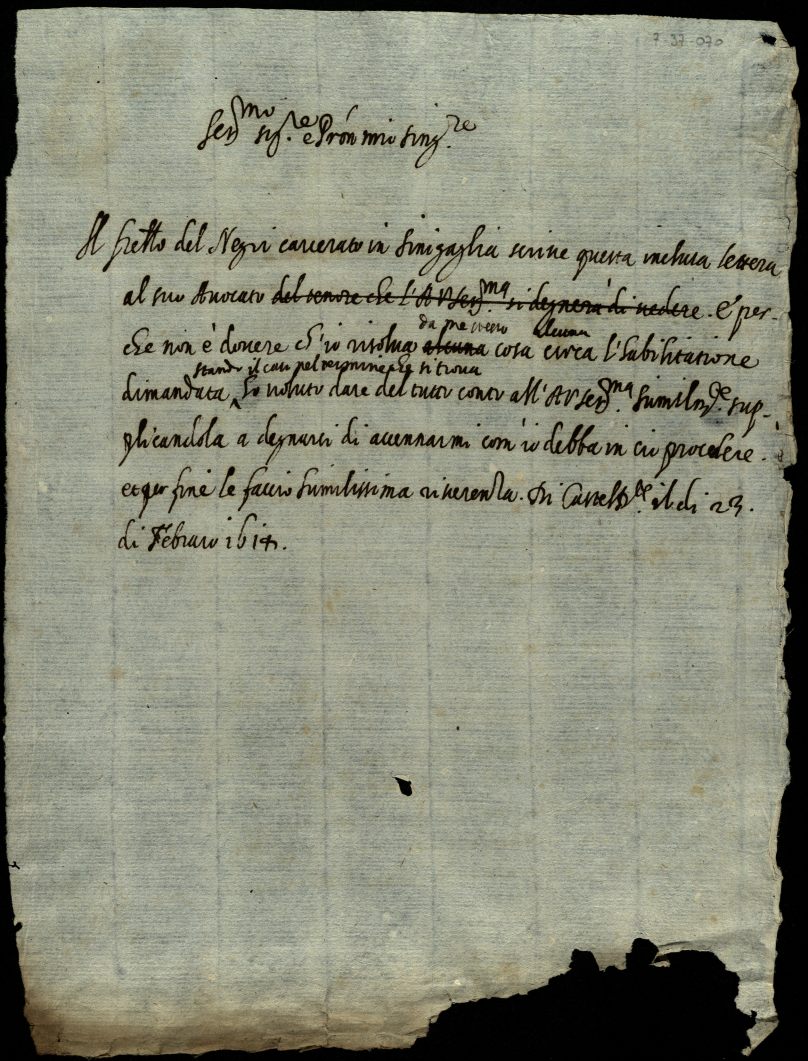 7-37-070
Ser.mo Sig.re e Pròn mio sing.re
Il fratello del Negri carcerato in Sinigaglia scrive questa inclusa lettera
al suo Avocato del tenore che l'A V Ser.ma si degnerà di vedere. E per-
da me stesso alcuna
che non è dovere ch'io risolva alcuna cosa circa l'habilitatione
stando il caso nel termine che si trova
dimandata ho voluto dare del tutto conto all'A V Ser.ma humilm.te sup-
plicandola a degnarsi di accennarmi com'io debba in ciò procedere.
et per fine le faccio humilissima riverenza. Di Casteld.te il dì 23.
di Febraro 1614.